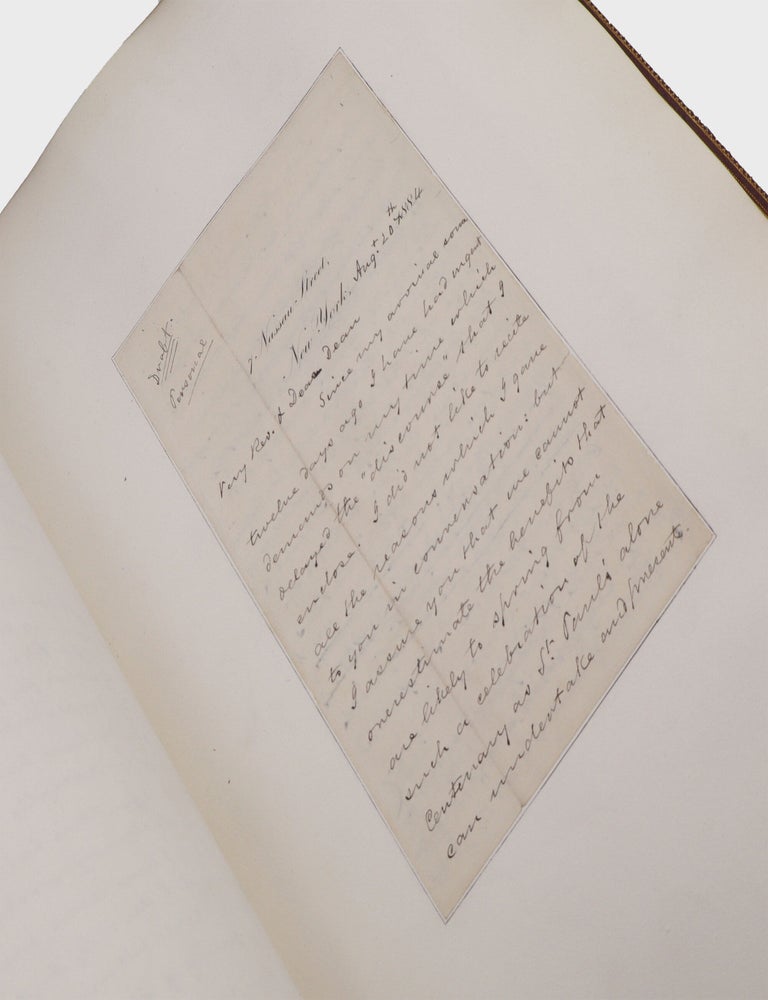 Draft.
Personal
7. Nassau Street,
New York, Augt. 20th 1884
Very Rev. & Dear Dean
Since my arrival some
twelve days ago I have had urgent
demands on my time which
delayed the "discourse" that I
enclose. I did not like to recite
all the reasons which I gave
to you in conversation: but
I assure you that we cannot
overestimate the benefits that
are likely to spring from
such a celebration of the
Centenary as St. Paul's alone
can undertake and present.